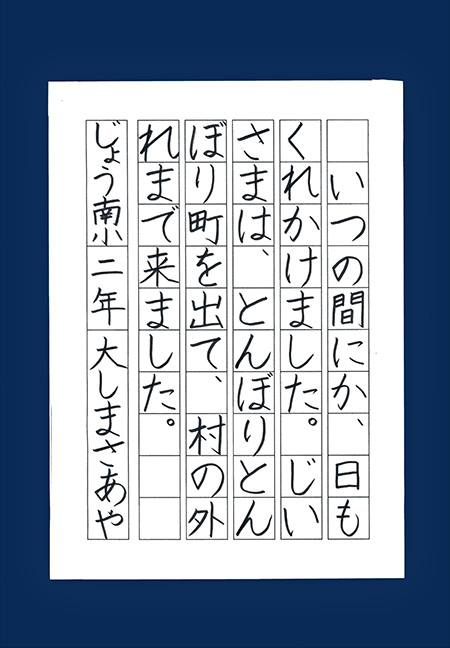 いつの間にか、日も
くれかけました。じい
さまは、とんぼりとん
ぼり町を出て、村の外
れまで来ました。
じょう南小二年 大しまさあや